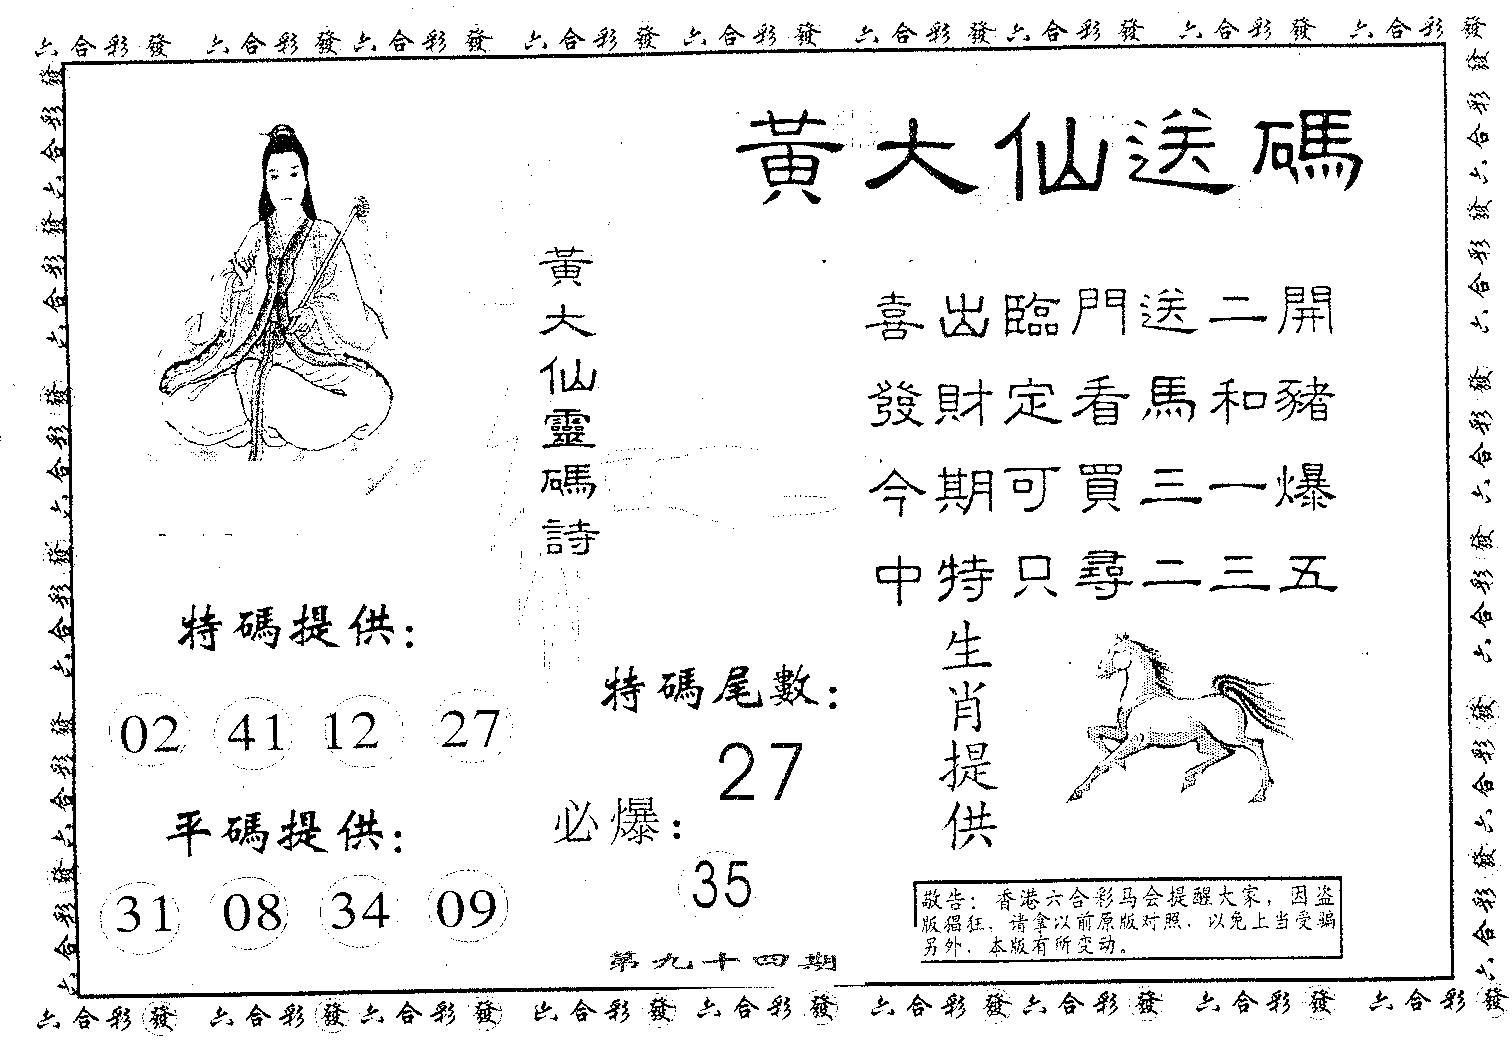 六合彩發 六合彩發六合彩發 六合彩發 六合彩發 六合彩發六合彩發 六合彩發 六合彩發
黃大仙送碼
黃大仙靈碼詩
喜出臨門送二開
發財定看馬和豬
今期可買三一爆
中特只尋二三五
特碼提供：
02 41 12 27
平碼提供：
31 08 34 09
特碼尾數：
27
必爆：
35
第九十四期
生肖提供
敬告：香港六合彩马会提醒大家，因盗
版猖狂，请拿以前原版对照，以免上当受骗
另外，本版有所变动。
六合彩發 六合彩發六合彩發 六合彩發 六合彩發 六合彩發六合彩發 六合彩發 六合彩發
六合彩發六合彩發六合彩發六合彩發六合彩發六合彩發
六合彩發六合彩發六合彩發六合彩發六合彩發六合彩發